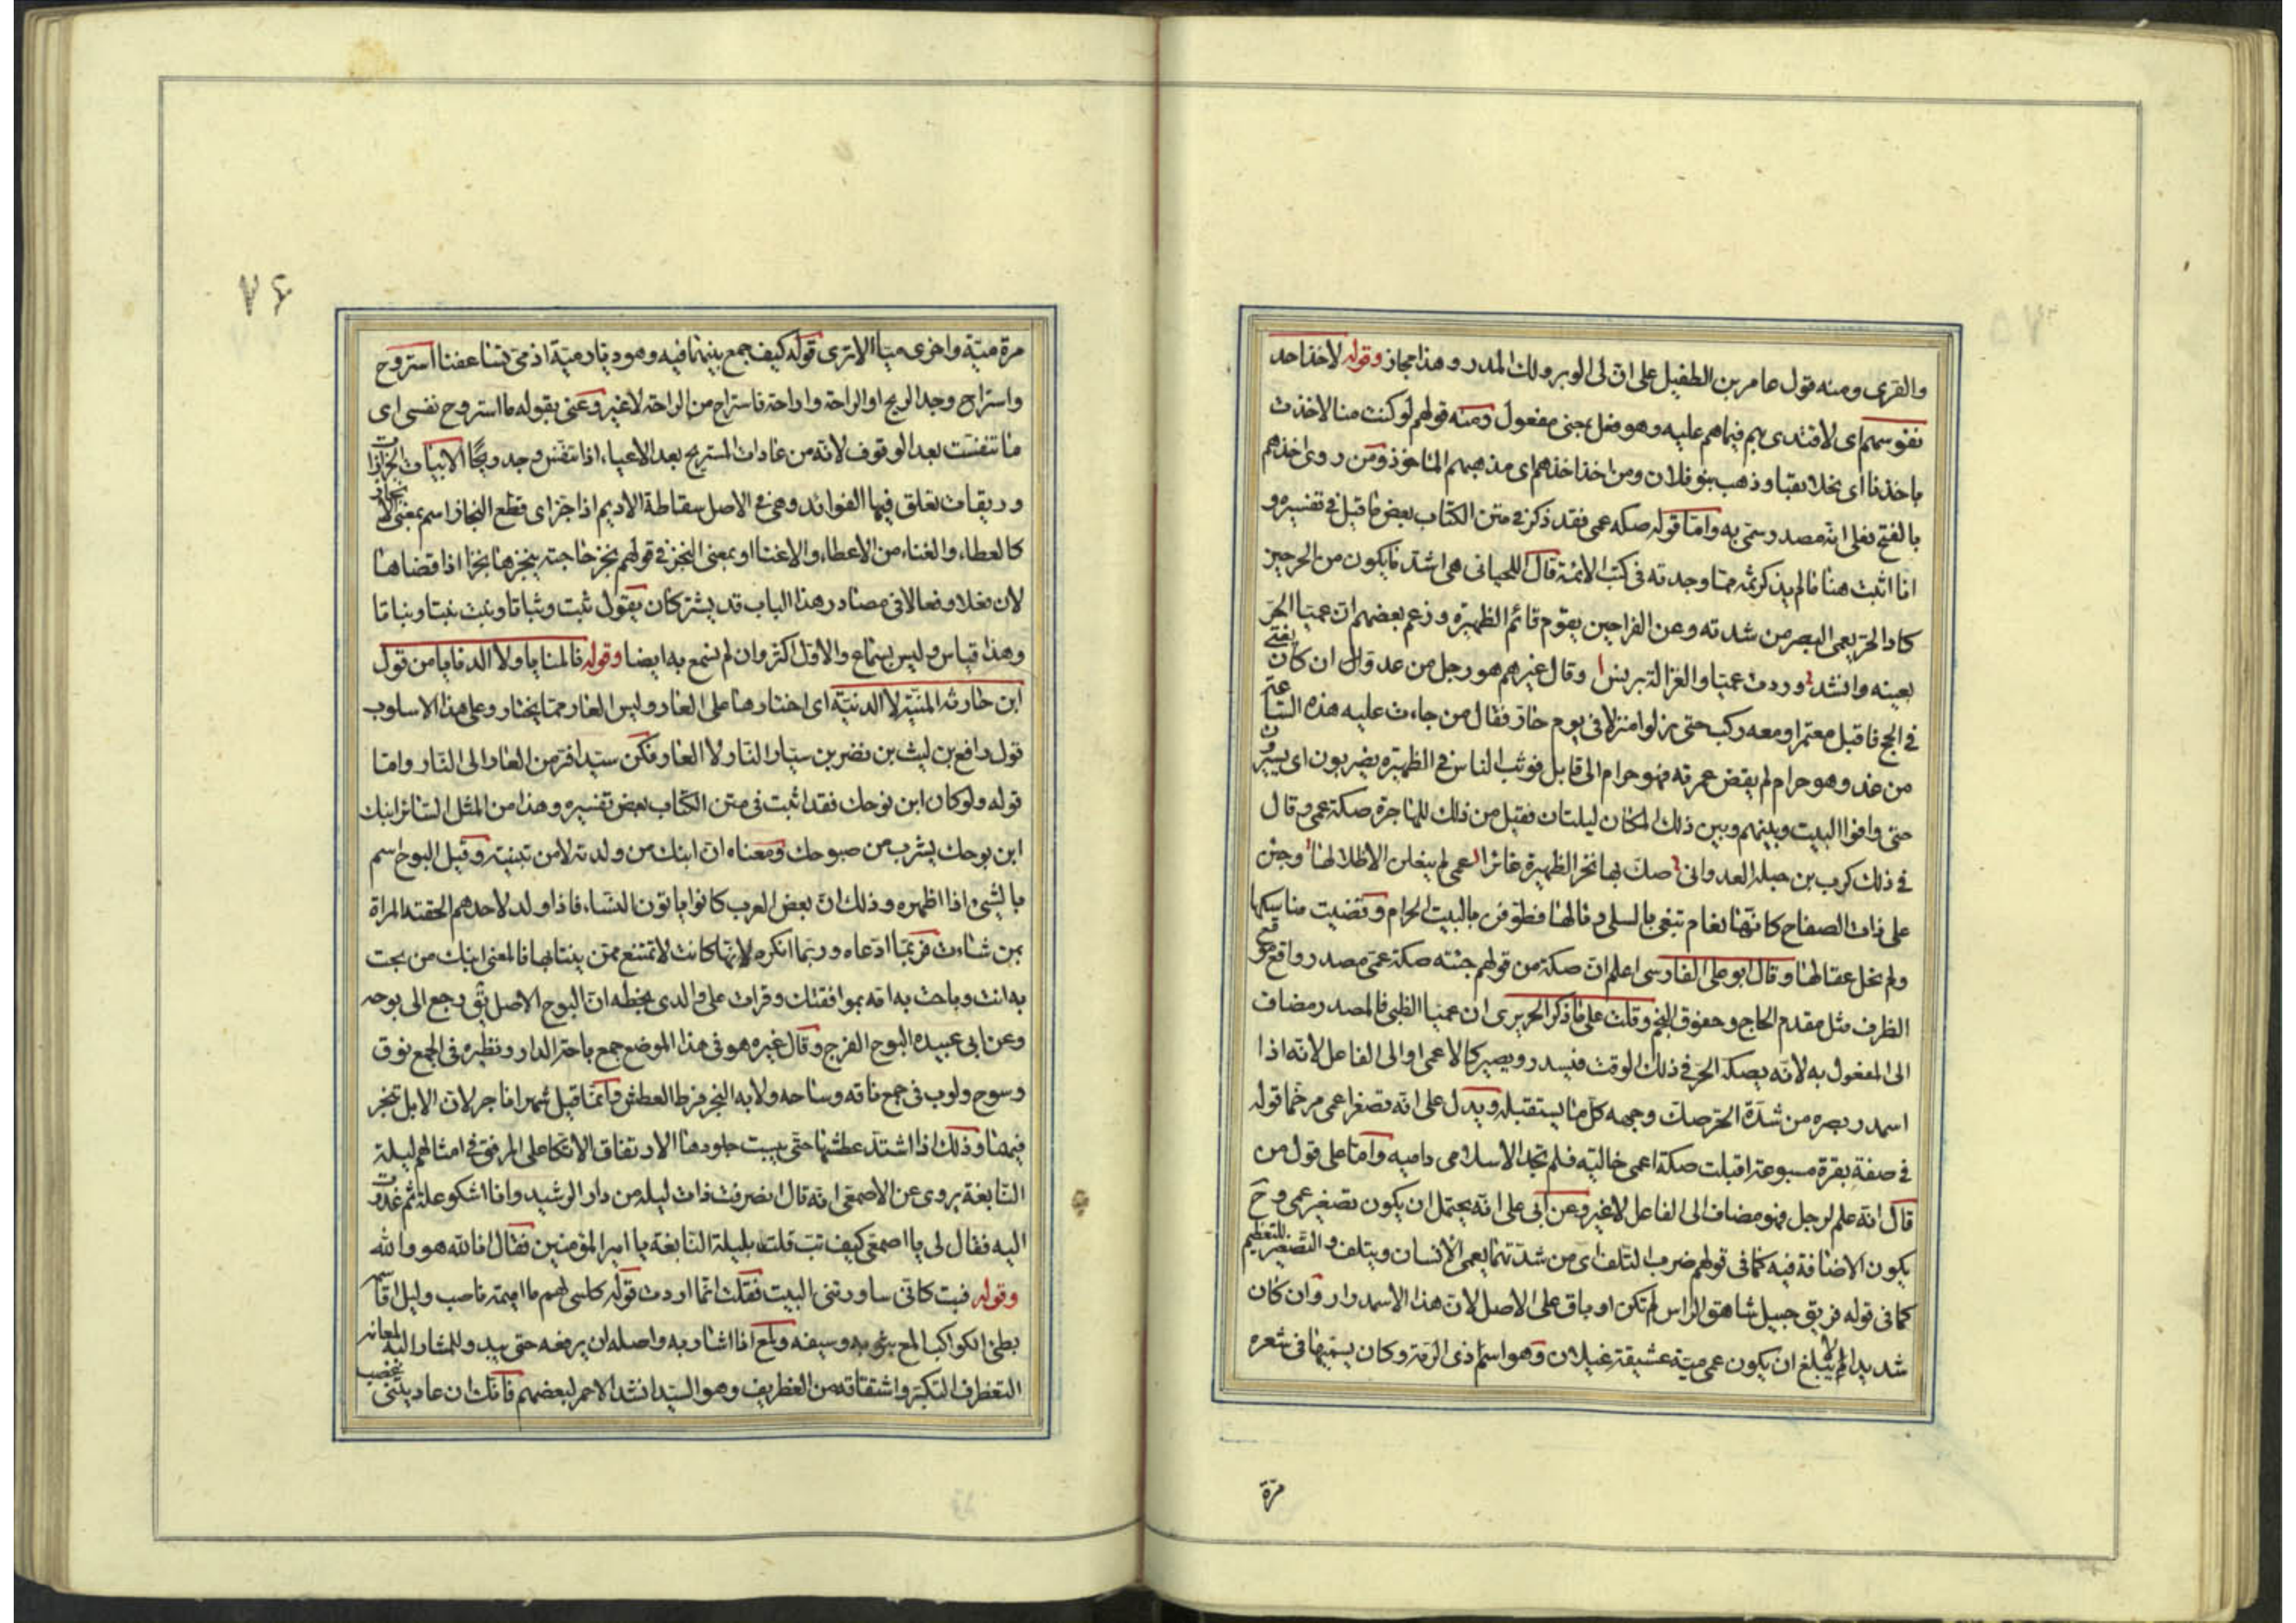 والقرى ومنه قول عامر بن الطفيل على ان لى الوبر ولك المدر وهذا مجاز وقوله لاخذ احد
نفوسهم اى لاقتدى بهم فيما هم عليه وهو فعل بمعنى مفعول ومنه قولهم لو كنت منا لاخذت
باخذنا اى بخلائقنا وذهب بنو فلان ومن اخذ اخذهم اى مذهبهم الماخوذ ومن روى اخذهم
بالفتح فعلى انه مصدر سمى به واما قوله صكه عمى فقد ذكر فى متن الكتاب بعض ما قيل فى تفسيره و
انا اثبت هنا ما لم يذكر ثمه مما وجدته فى كتب الائمة قال اللحيانى هى اشد ما يكون من الحر حين
كاد الحر يعمى البصر من شدته وعن الفرا حين يقوم قائم الظهيرة وزعم بعضهم ان عميا الحر
بعينه وانشد وردت عميا والغزالة برنس وقال غيرهم هو رجل من عدوان كان يفتى
فى الحج فاقبل معتمرا ومعه ركب حتى نزلوا منزلا فى يوم حار فقال من جاءت عليه هذه الساعة
من غد وهو حرام لم يقض عمرته فهو حرام الى قابل فوثب الناس فى الظهيرة يضربون اى يسيرون
حتى وافوا البيت وبينهم وبين ذلك المكان ليلتان فقيل من ذلك للهاجرة صكة عمى وقال
فى ذلك كرب بن جبلة العدوانى صك بها نحر الظهيرة غائرا عمى لم ينعلن الا ظلالها وجئن
على ذات الصفاح كانها نعام تبغى بالسلى رئالها فطوفن بالبيت الحرام وقضيت مناسكها
ولم تحل عقالها وقال ابو على الفارسى اعلم ان صكة من قولهم جئته صكة عمى مصدر واقع موقع
الظرف مثل مقدم الحاج وخفوق النجم وقلت على ما ذكر الحريرى ان عميا الظبى فالمصدر مضاف
الى المفعول به لانه يصكه الحر فى ذلك الوقت فيسدر ويصير كالاعمى او الى الفاعل لانه اذا
اسمدر بصره من شدة الحر صك وجهه كل ما يستقبله ويدل على انه تصغر اعمى مرخما قوله
فى صفة بقرة مسبوعة اقبلت صكة اعمى خالية فلم تجد الا سلامى دامية واما على قول من
قال انه علم لرجل فهو مضاف الى الفاعل لا غير وعن ابى على انه يحتمل ان يكون تصغير عمى وح
يكون الاضافة فيه كما فى قولهم ضرب التلف اى من شدتها يعمى الانسان ويتلف والتصغير للتعظيم
كما فى قوله فويق جبيل شاهق الراس لم تكن او باق على الاصل لان هذا الاسمدرار وان كان
شديدا لم يبلغ ان يكون عمى مية عشيقة غيلان وهو اسم ذى الرمة وكان يسميها فى شعره
مرة
٧٦
مرة مية واخرى ميا الا ترى قوله كيف جمع بينهما فيه وهو ديار مية اذ مى تساعفنا استروح
واستراح وجد الريح او الراحة واراحه فاستراح من الراحة لا غير وعنى بقوله ما استروح نفسى اى
ما تنفست بعد الوقوف لانه من عادات المستريح بعد الاعياء اذا تنفس وجد ريحا الابيات الجزازات
وريقات تعلق فيها الفوائد وهى فى الاصل سقاطة الاديم اذا جز اى قطع النجاز اسم بمعنى الانجاز
كالعطاء والغناء من الاعطاء والاغنا او بمعنى النجز فى قولهم نجز حاجته ينجزها نجزا اذا قضاها
لان فعلا وفعالا فى مصادر هذا الباب قد يشتركان يقول ثبت وثباتا ونبت نبتا ونباتا
وهذا قياس وليس بسماع والاول اكثر وان لم نسمع به ايضا وقوله فالمنايا ولا الدنايا من قول
ابن حارثه المنية لا الدنية اى اختارها على العار وليس العار مما يختار وعلى هذا الاسلوب
قول رافع بن ليث بن نضر بن سيار النار لا العار فكن سيدا فر من العار الى النار واما
قوله ولو كان ابن بوحك فقد اثبت فى متن الكتاب بعض تفسيره وهذا من المثل السائر ابنك
ابن بوحك يشرب من صبوحك ومعناه ان ابنك من ولدته لا من تبنيته وقيل البوح اسم
بالشىء اذا اظهره وذلك ان بعض العرب كانوا ياتون النساء فاذا ولد لاحدهم الحقته المراة
بمن شاءت فربما ادعاه وربما انكره لانها كانت لا تمتنع ممن ينتابها فالمعنى ابنك من بحت
به انت وباحت به امه بموافقتك وقرات على والدى بخطه ان البوح الاصل يق رجع الى بوحه
وعن ابى عبيده البوح الفرج وقال غيره هو فى هذا الموضع جمع باحة الدار ونظيره فى الجمع نوق
وسوح ولوب فى جمع ناقه وساحه ولابه النجر فرط العطش وانما قيل شهرا ناجر لان الابل تنجر
فيهما وذلك اذا اشتد عطشها حتى يبست جلودها الارتفاق الاتكا على المرفق فى امثالهم ليلة
النابغة يروى عن الاصمعى انه قال انصرفت ذات ليله من دار الرشيد وانا اشكو علة ثم غدوت
اليه فقال لى يا اصمعى كيف بت قلت بليلة النابغة يا امير المؤمنين فقال انا لله هو والله
وقوله فبت كانى ساورتنى البيت فقلت انما اردت قوله كلينى لهم يا اميمة ناصب وليل اقاسيه
بطئ الكواكب المع بثوبه وسيفه ولمع اذا اشار به واصله ان يرفعه حتى يبد وللمشار اليه لمعانه
التغطرف التكبر واشتقاقه من الغطريف وهو السيد انشد الاحمر لبعضهم فانك ان عاديتنى غضب